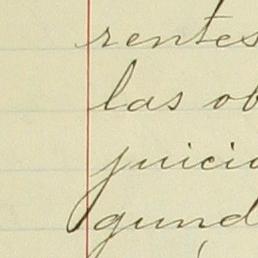 rentes
las ob
juicio
gund